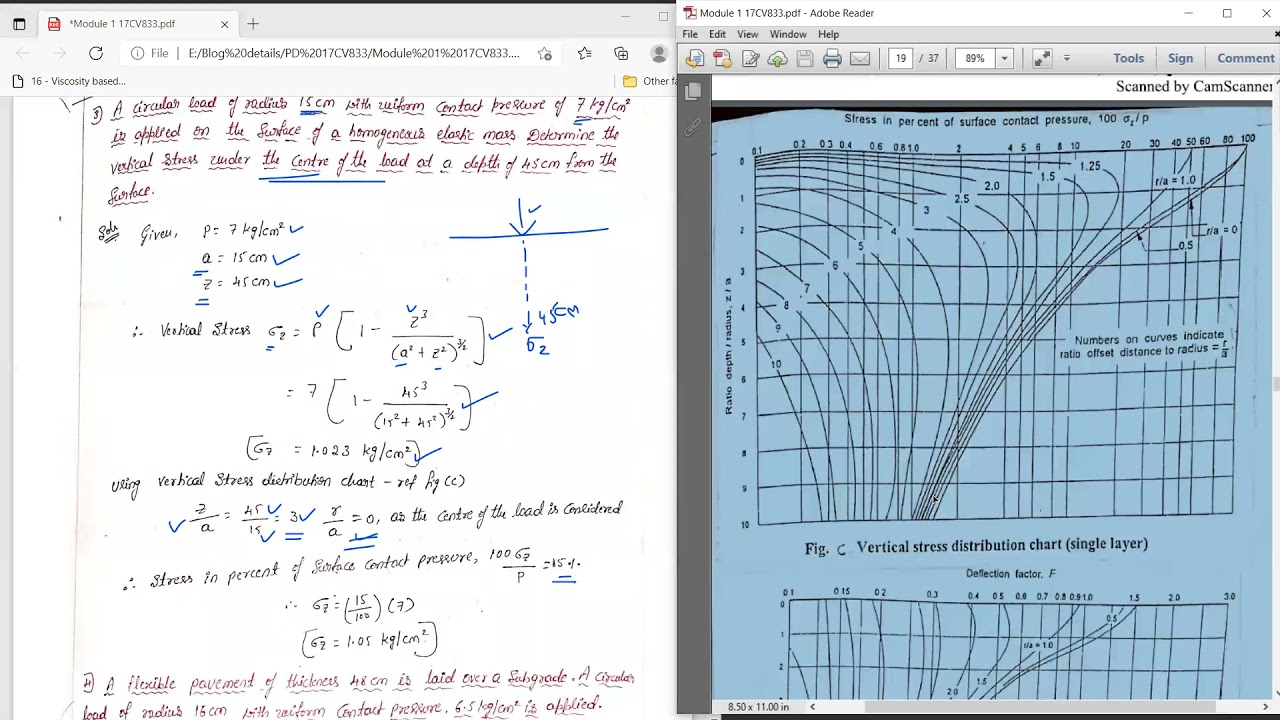 *Module 1 17CV833.pdf
File
E:/Blog%20details/PD%2017CV833/Module%201%2017CV833....
16 - Viscosity based...
Other fa
3) A circular load of radius 15cm with uniform contact pressure of 7 kg/cm²
is applied on the surface of a homogeneous elastic mass. Determine the
vertical stress under the centre of the load at a depth of 45cm from the
surface.
Soln Given, P = 7 kg/cm²
a = 15cm
z = 45cm
∴ Vertical stress σz = P [1 - z³/(a² + z²)^3/2]
45cm
σz
= 7 [1 - 45³/(15² + 45²)^3/2]
[σz = 1.023 kg/cm²]
Using vertical stress distribution chart - ref fig (c)
z/a = 45/15 = 3 r/a = 0, as the centre of the load is considered
∴ Stress in percent of surface contact pressure, 100σz/P = 15%
∴ σz = (15/100) (7)
[σz = 1.05 kg/cm²]
4) A flexible pavement of thickness 48cm is laid over a subgrade. A circular
load of radius 16cm with uniform contact pressure, 6.5 kg/cm² is applied.
Module 1 17CV833.pdf - Adobe Reader
File Edit View Window Help
19 / 37 89% Tools Sign Comment
Scanned by CamScanner
Stress in per cent of surface contact pressure, 100 σz/p
0.1 0.2 0.3 0.4 0.6 0.8 1.0 2 4 5 6 8 10 20 30 40 50 60 80 100
0
1
2
3
4
5
6
7
8
9
10
Ratio depth / radius, z / a
1.25
1.5
2.0
2.5
3
4
5
6
7
8
9
10
r/a = 1.0
r/a = 0
0.5
Numbers on curves indicate
ratio offset distance to radius = r/a
Fig. C Vertical stress distribution chart (single layer)
Deflection factor, F
0.1 0.15 0.2 0.3 0.4 0.5 0.6 0.7 0.8 0.9 1.0 1.5 2.0 3.0
0
1
2
0.5
r/a = 1.0
1.5
2.0
8.50 x 11.00 in